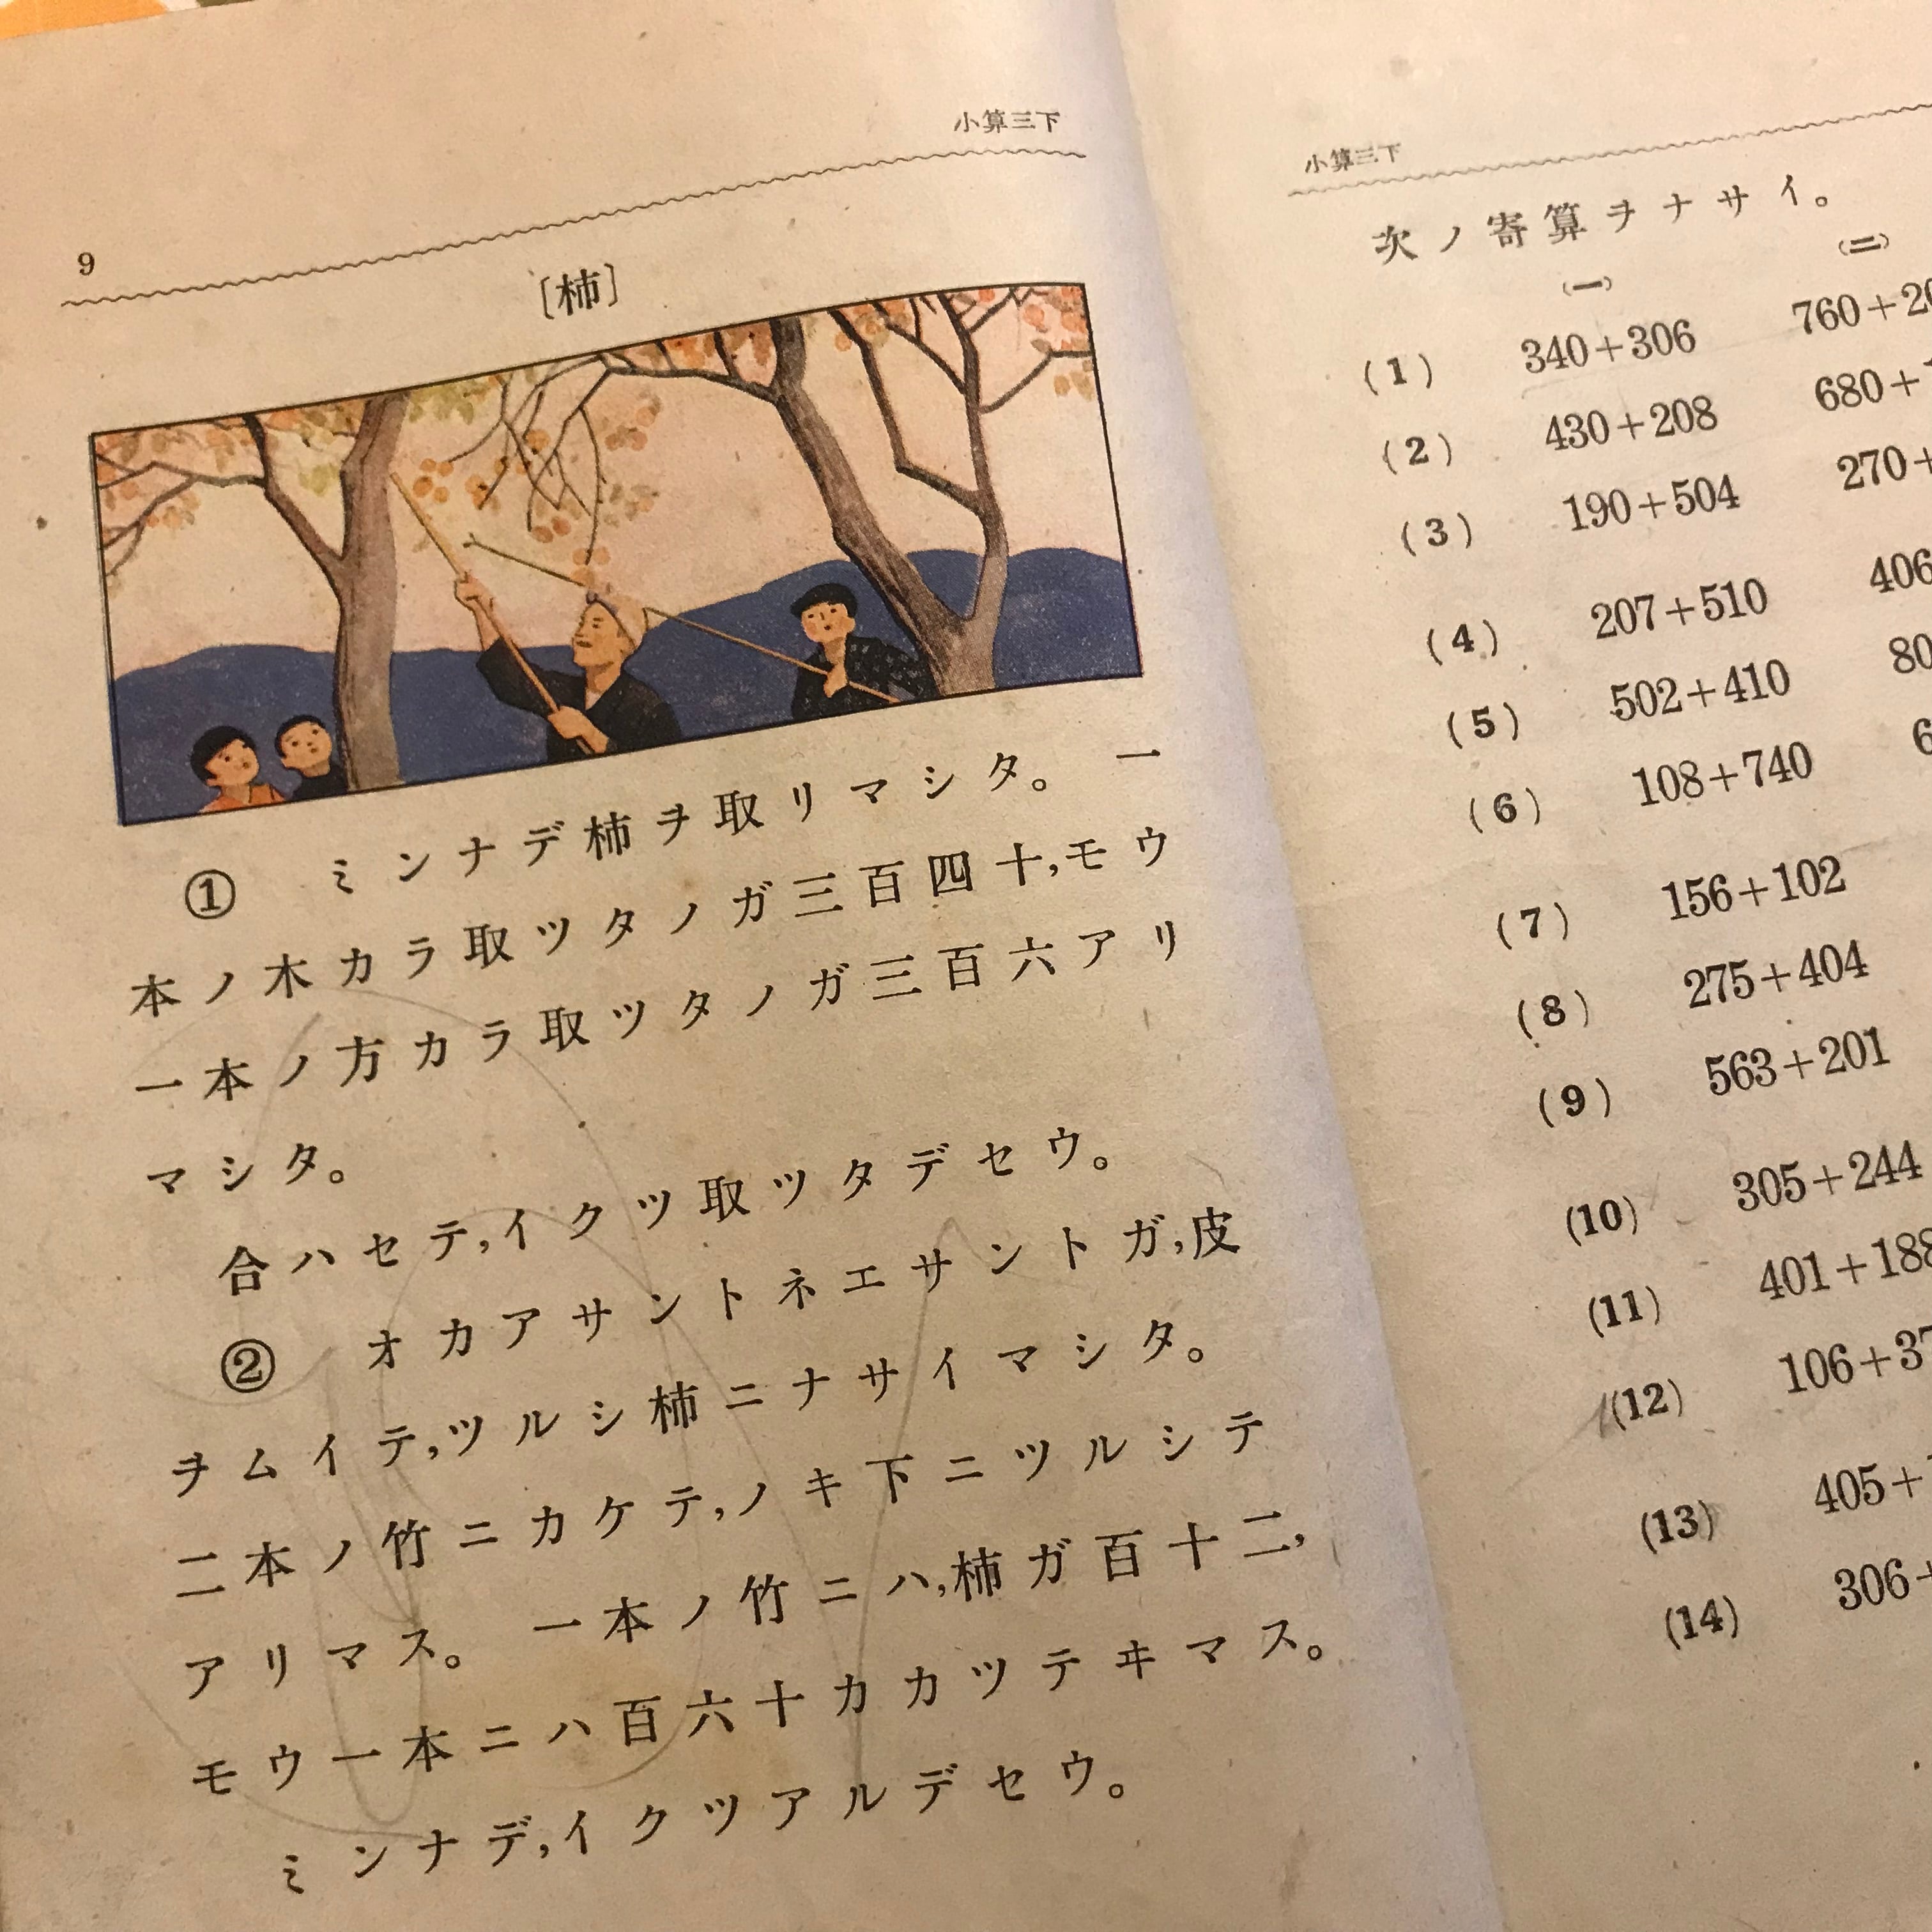 小算三下
9
〔柿〕
① ミンナデ柿ヲ取リマシタ。 一
本ノ木カラ取ツタノガ三百四十,モウ
一本ノ方カラ取ツタノガ三百六アリ
マシタ。
合ハセテ,イクツ取ツタデセウ。
② オカアサントネエサントガ,皮
ヲムイテ,ツルシ柿ニナサイマシタ。
二本ノ竹ニカケテ,ノキ下ニツルシテ
アリマス。 一本ノ竹ニハ,柿ガ百十二,
モウ一本ニハ百六十カカツテヰマス。
ミンナデ,イクツアルデセウ。
小算三下
次ノ寄算ヲナサイ。
(一) (二)
(1) 340+306 760+
(2) 430+208 680+
(3) 190+504 270+
(4) 207+510 406
(5) 502+410
(6) 108+740
(7) 156+102
(8) 275+404
(9) 563+201
(10) 305+244
(11) 401+188
(12) 106+
(13) 405+
(14) 306+